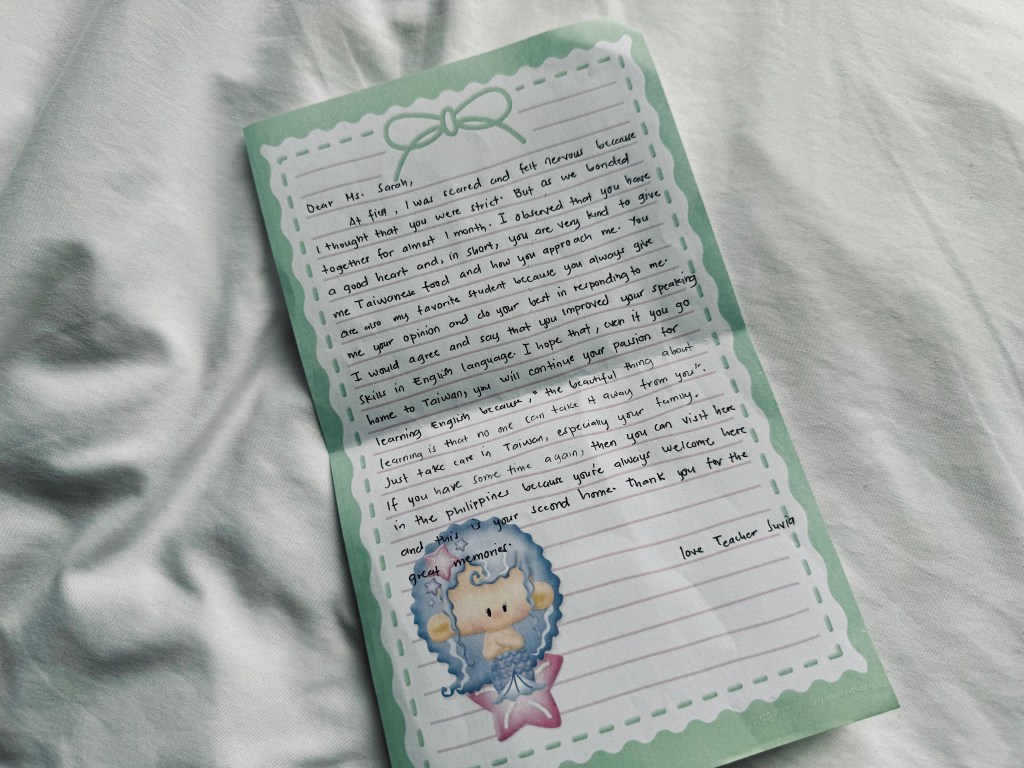 Dear Ms. Sarah,
At first, I was scared and felt nervous because
I thought that you were strict. But as we bonded
together for almost 1 month. I observed that you have
a good heart and, in short, you are very kind to give
me Taiwanese food and how you approach me. You
are also my favorite student because you always give
me your opinion and do your best in responding to me.
I would agree and say that you improved your speaking
skills in English language. I hope that, even if you go
home to Taiwan, you will continue your passion for
learning English because, "the beautiful thing about
learning is that no one can take it away from you".
Just take care in Taiwan, especially your family.
If you have some time again, then you can visit here
in the philippines because you're always welcome here
and this is your second home. Thank you for the
great memories.
love Teacher Juvia